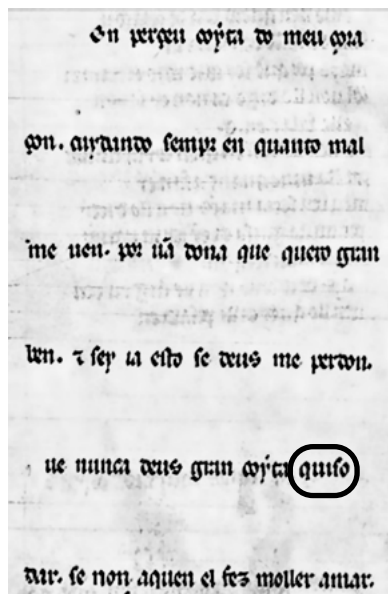 On perçeu coyta do meu cora
çon. cuydando sempr en quanto mal
me uen. por ũa dona que quero gran
ben. ⁊ sey ia esto se deus me perdon.
ue nunca deus gran coyta quiso
dar. se non aquen el fez moller amar.